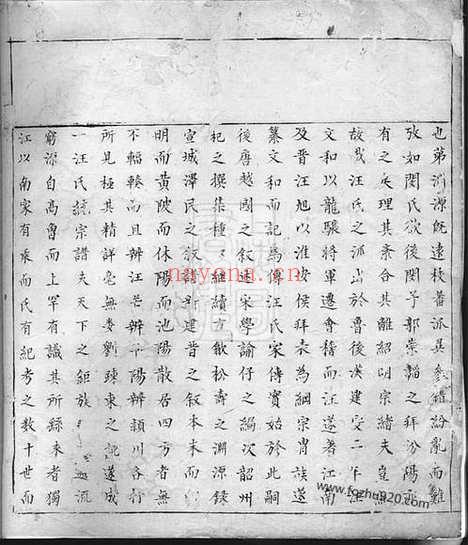 也第沂源既遠枝蕃派異參錯紛亂而難
張如閔氏欲後閔予郭崇韜之拜汾陽
有之矣理其紊合其離紹明宗緒夫豈
故哉汪氏之派出於魯後漢建安二年汪
文和以龍驤將軍遷會稽而汪遂著江南
及晉汪旭以淮安侯拜表為綱宗胄族遂
纂文和而記為傳汪氏家傳實始於此嗣
後唐越國之叙述宋學諭仔之編次韶州
杞之撰集種々継續方歙松壽之淵源錄
宣城澤民之叙族新建昔之叙本末而
明而黃陂而休陽而池陽散居四方者無
不輻輳而且辨汪芒辨平陽辨潁川各行
所見極其精詳毫無婁劉踈東之訛遂成
一汪氏統宗譜夫天下之鉅族
窮源自高曾而上罕有識其所録来者獨
江以南家有乘而氏有紀考之数十世而
nayona.cn
www.fozhu920.com